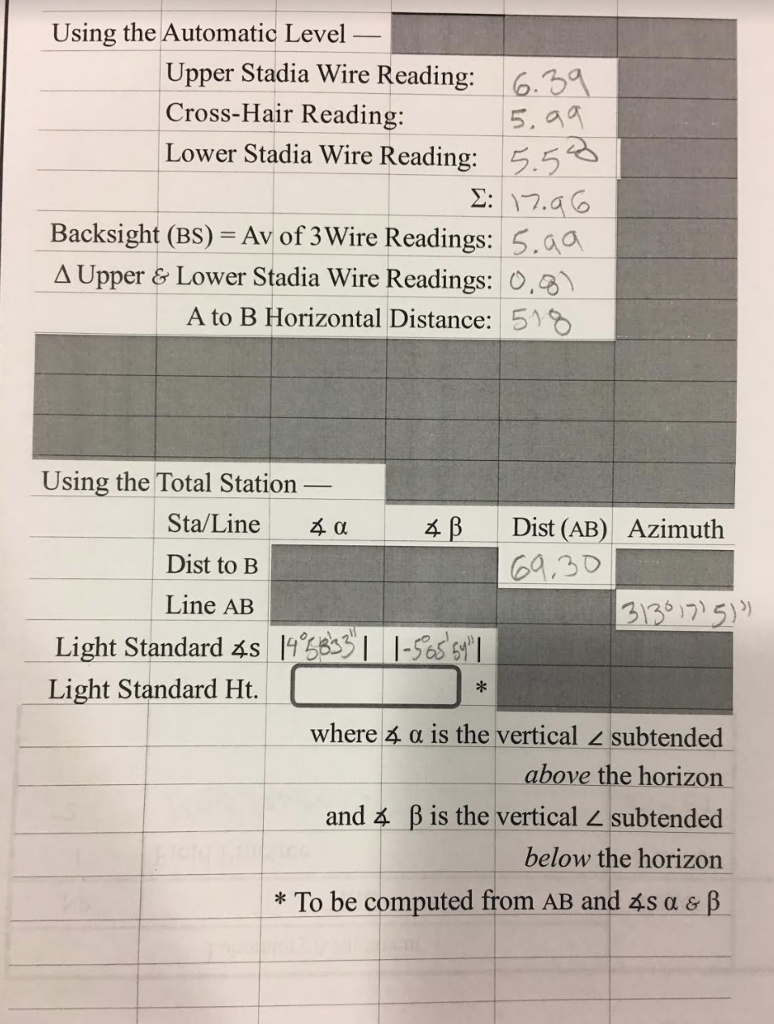 Using the Automatic Level —
Upper Stadia Wire Reading: 6.39
Cross-Hair Reading: 5.99
Lower Stadia Wire Reading: 5.58
Σ: 17.96
Backsight (BS) = Av of 3 Wire Readings: 5.99
Δ Upper & Lower Stadia Wire Readings: 0.81
A to B Horizontal Distance: 518
Using the Total Station —
Sta/Line ∡ α ∡ β Dist (AB) Azimuth
Dist to B 69.30
Line AB 313°17'51"
Light Standard ∡s |4°58'33"| |-5°65'54"|
Light Standard Ht. *
where ∡ α is the vertical ∠ subtended
above the horizon
and ∡ β is the vertical ∠ subtended
below the horizon
* To be computed from AB and ∡s α & β